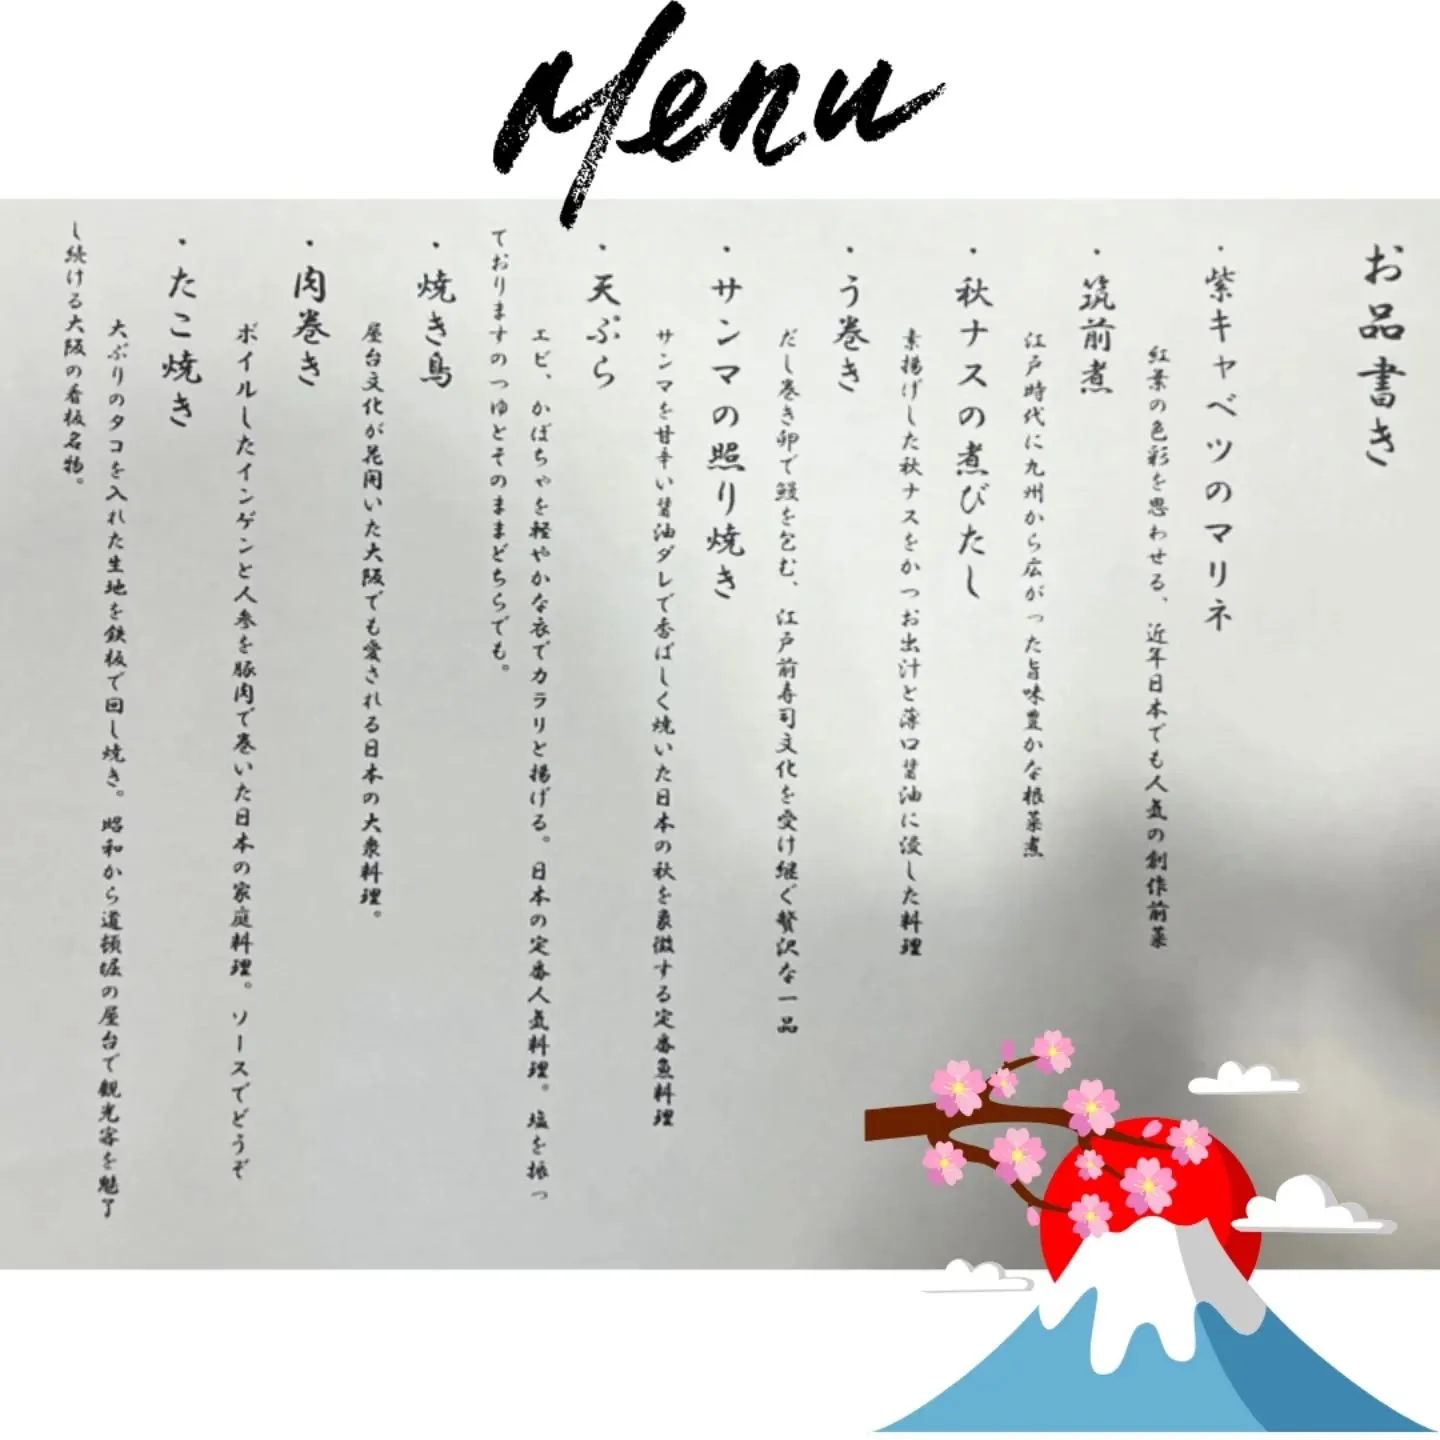 Menu
お品書き
・紫キャベツのマリネ
紅葉の色彩を思わせる、近年日本でも人気の創作前菜
・筑前煮
江戸時代に九州から広がった旨味豊かな根菜煮
・秋ナスの煮びたし
素揚げした秋ナスをかつお出汁と薄口醤油に浸した料理
・う巻き
だし巻き卵で鰻を包む、江戸前寿司文化を受け継ぐ贅沢な一品
・サンマの照り焼き
サンマを甘辛い醤油ダレで香ばしく焼いた日本の秋を象徴する定番魚料理
・天ぷら
エビ、かぼちゃを軽やかな衣でカラリと揚げる。日本の定番人気料理。塩を振っ
ておりますのつゆとそのままどちらでも。
・焼き鳥
屋台文化が花開いた大阪でも愛される日本の大衆料理。
・肉巻き
ボイルしたインゲンと人参を豚肉で巻いた日本の家庭料理。ソースでどうぞ
・たこ焼き
大ぶりのタコを入れた生地を鉄板で回し焼き。昭和から道頓堀の屋台で観光客を魅了
し続ける大阪の看板名物。